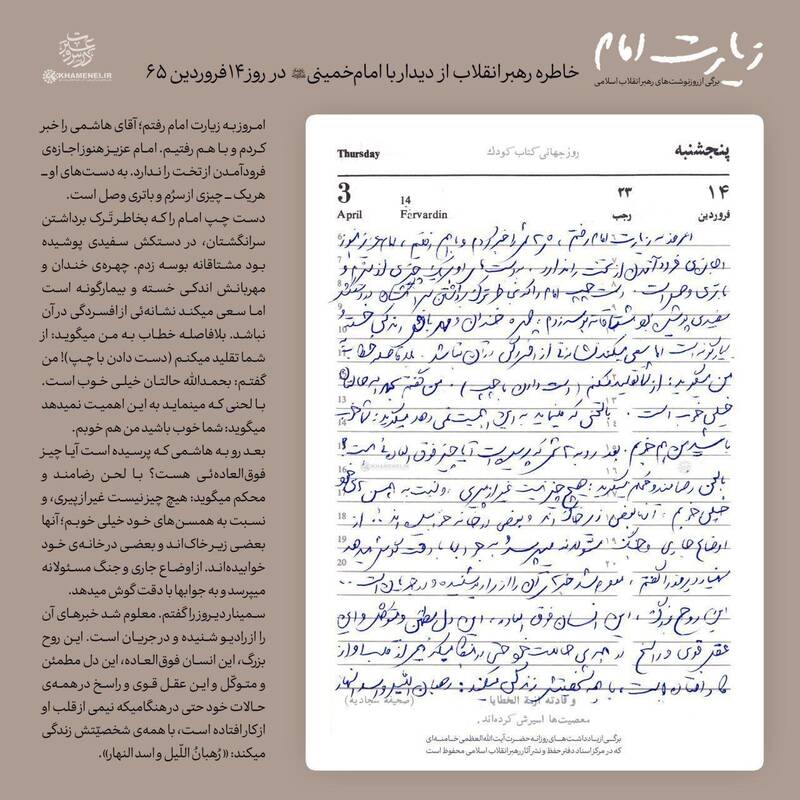 زیارت امام
برگی از روزنوشت‌های رهبر انقلاب اسلامی
خاطره رهبر انقلاب از دیدار با امام خمینی در روز ۱۴ فروردین ۶۵
KHAMENEI.IR
امروز به زیارت امام رفتم؛ آقای هاشمی را خبر
کردم و با هم رفتیم. امام عزیز هنوز اجازه‌ی
فرودآمدن از تخت را ندارد. به دست‌های او ـ
هریک ـ چیزی از سرُم و باتری وصل است.
دست چپ امام را که بخاطر تَرک برداشتن
سرانگشتان، در دستکش سفیدی پوشیده
بود مشتاقانه بوسه زدم. چهره‌ی خندان و
مهربانش اندکی خسته و بیمارگونه است
اما سعی میکند نشانه‌ئی از افسردگی در آن
نباشد. بلافاصله خطاب به من میگوید: از
شما تقلید میکنم (دست دادن با چپ)! من
گفتم: بحمدالله حالتان خیلی خوب است.
با لحنی که مینماید به این اهمیت نمیدهد
میگوید: شما خوب باشید من هم خوبم.
بعد رو به هاشمی که پرسیده است آیا چیز
فوق‌العاده‌ئی هست؟ با لحن رضامند و
محکم میگوید: هیچ چیز نیست غیر از پیری، و
نسبت به همسن‌های خود خیلی خوبم؛ آنها
بعضی زیر خاک‌اند و بعضی در خانه‌ی خود
خوابیده‌اند. از اوضاع جاری و جنگ مسئولانه
میپرسد و به جوابها با دقت گوش میدهد.
سمینار دیروز را گفتم. معلوم شد خبرهای آن
را از رادیو شنیده و در جریان است. این روح
بزرگ، این انسان فوق‌العاده، این دل مطمئن
و متوکّل و این عقل قوی و راسخ در همه‌ی
حالات خود حتی در هنگامیکه نیمی از قلب او
از کار افتاده است، با همه‌ی شخصیّتش زندگی
میکند: «رُهبانُ اللّیل و اسد النهار».
پنجشنبه
روز جهانی کتاب کودک
Thursday
۱۴
فروردین
۲۳
رجب
14
Farvardin
3
April
امروز به زیارت امام رفتم، هاشمی را خبر کردم و با هم رفتیم، امام عزیز هنوز
اجازه‌ی فرود آمدن از تخت را ندارد. بدست‌های او ـ هریک ـ چیزی از سرم و
باتری وصل است. دست چپ امام را که بخاطر ترک برداشتن سرانگشتان در دستکش
سفیدی پوشیده بود مشتاقانه بوسه زدم. چهره خندان و مهربانش اندکی خسته و
بیمارگونه است اما سعی میکند نشانه‌ئی از افسردگی در آن نباشد. بلافاصله خطاب به
من میگوید: از شما تقلید میکنم (دست دادن با چپ). من گفتم بحمدالله حالتان
خیلی خوب است. بالحنی که مینماید به این اهمیت نمی دهد میگوید: شما خوب
باشید من هم خوبم. بعد رو به هاشمی که پرسیده است آیا چیز فوق العاده‌ئی هست؟
بالحن رضامند و محکم میگوید: هیچ چیز نیست غیر از پیری، و نسبت به همسن های خود
خیلی خوبم، آنها بعضی زیر خاک اند و بعضی در خانه خوابیده اند... از
اوضاع جاری و جنگ مسئولانه میپرسد و به جوابها با دقت گوش میدهد
سمینار دیروز را گفتم، معلوم شد خبرهای آن را از رادیو شنیده و در جریان است...
این روح بزرگ، این انسان فوق العاده، این دل مطمئن و متوکل و این
عقل قوی و راسخ در همه‌ی حالات خود حتی در هنگامیکه نیمی از قلب او از
کار افتاده است، با همه شخصیتش زندگی میکند: رهبان اللیل و اسد النهار
و قادته ازمة الخطایا
(صحیفه سجادیه)
معصیت‌ها اسیرش کرده‌اند.
برگـی از یادداشت‌هـای روزانه حضرت آیت‌الله‌العظمی خامنه‌ای
که در مرکز اسناد دفتر حفظ و نشر آثار رهبر انقلاب اسلامی محفوظ است